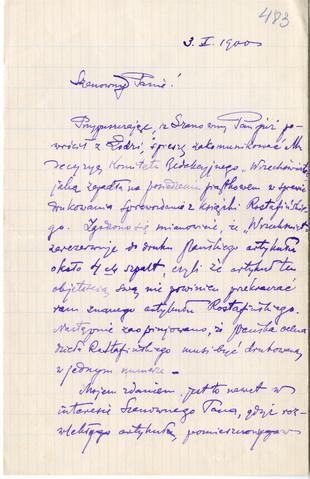 483
3. X. 1900
Szanowny Panie!
Przypuszczając, iż Szanowny Pan już po-
wrócił z Łodzi, śpieszę zakomunikować Mu
decyzyą Komitetu Redakcyjnego „Wszechświata",
jaka zapadła na posiedzeniu piątkowem w sprawie
drukowania sprawozdania z książki Rostafińskie-
go. Zgodzono się mianowicie, że „Wszechświat"
zarezerwuje do druku Pańskiego artykułu
około 4 szpalt, czyli że artykuł ten
objętością swą nie powinien przekraczać
ram znanego artykułu Rostafińskiego.
Następnie zaopiniowano, że Pańska ocena
dzieła Rostafińskiego musi być drukowaną
w jednym numerze. –
Mojem zdaniem, jest to nawet w
interesie Szanownego Pana, gdyż roz-
wlekłego artykułu, pomieszczonego w